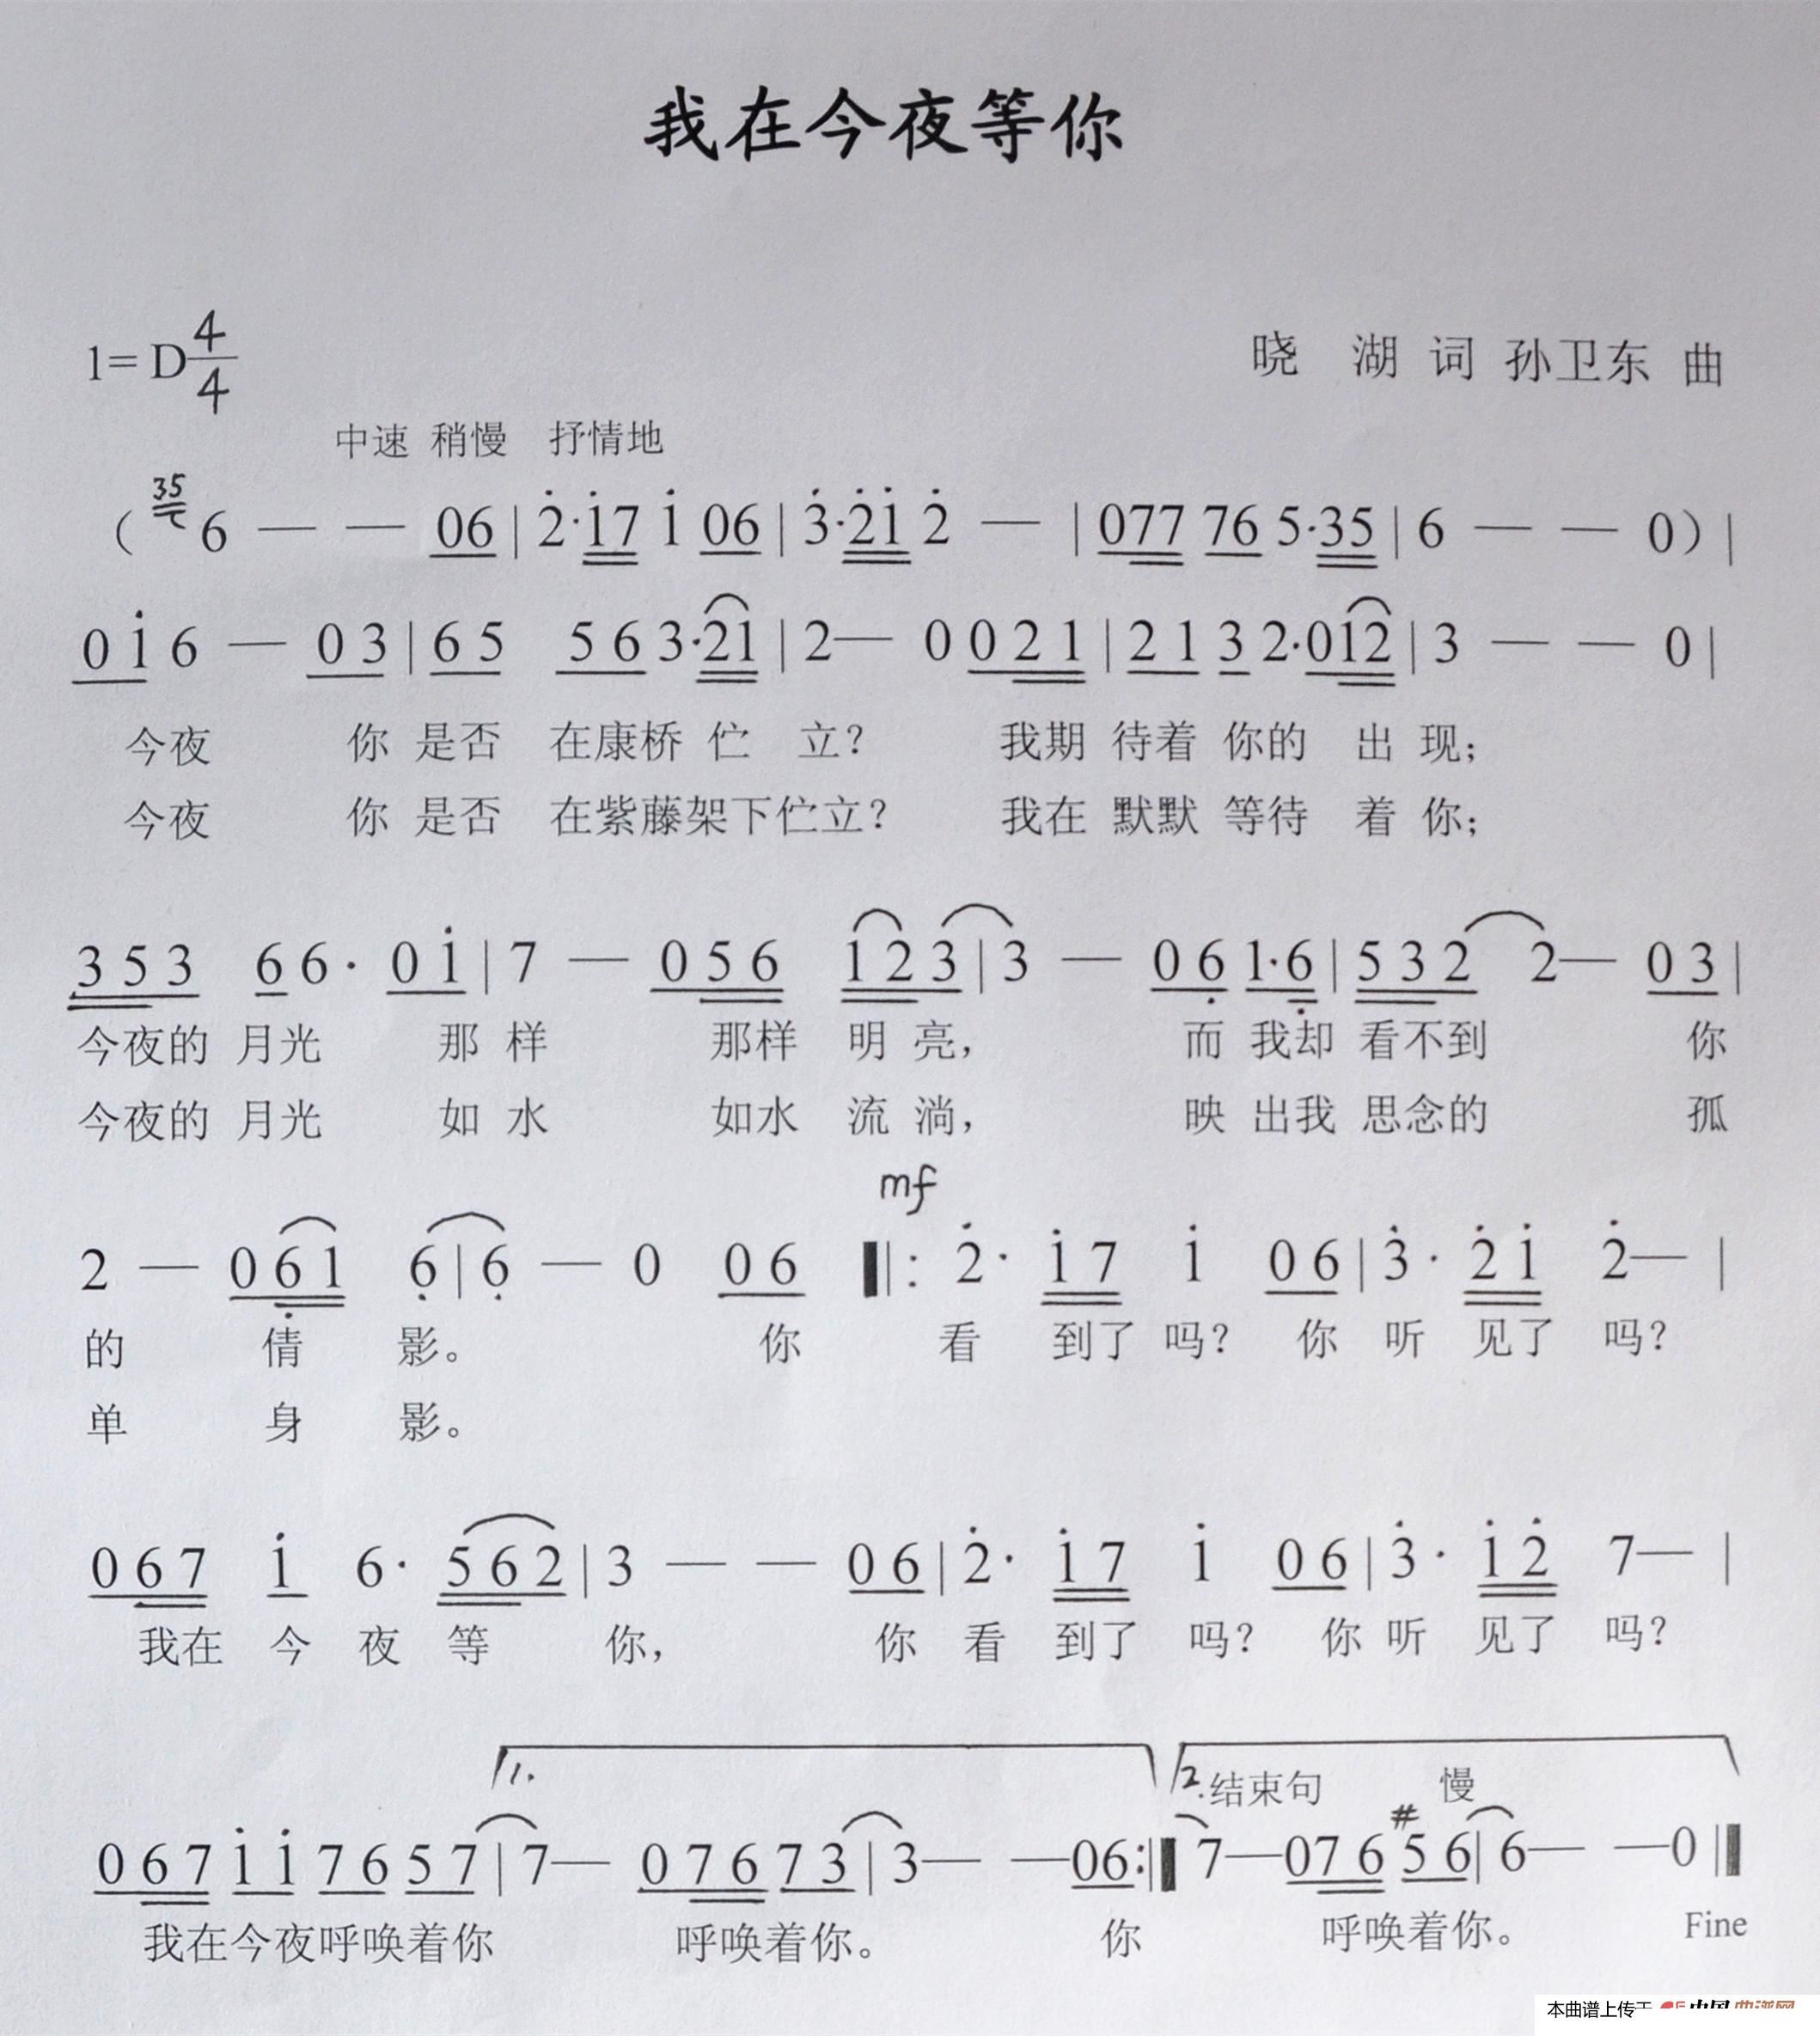 我在今夜等你
1= D 4/4
晓 湖 词 孙卫东 曲
中速 稍慢 抒情地
( 35 6 — — 06 | 2̇·i̇7 i̇ 06 | 3̇·2̇i̇ 2̇ — | 077 76 5·35 | 6 — — 0 ) |
0 i̇ 6 — 0 3 | 6 5 5 6 3·21 | 2 — 0 0 2 1 | 2 1 3 2·012 | 3 — — 0 |
今夜 你 是否 在康桥 伫 立? 我期 待着 你的 出 现;
今夜 你 是否 在紫藤架下伫立? 我在 默默 等待 着 你;
3 5 3 6 6· 0 i̇ | 7 — 0 5 6 1 2 3 | 3 — 0 6̣ 1·6̣ | 5 3 2 2 — 0 3 |
今夜的 月光 那 样 那样 明 亮, 而 我却 看不到 你
今夜的 月光 如 水 如水 流 淌, 映 出我 思念的 孤
mf
2 — 0 6̣ 1 6̣ | 6̣ — 0 0 6 ‖: 2̇· i̇ 7 i̇ 0 6 | 3̇· 2̇ i̇ 2̇ — |
的 倩 影。 你 看 到了 吗? 你 听 见了 吗?
单 身 影。
0 6 7 i̇ 6· 5 6 2 | 3 — — 0 6 | 2̇· i̇ 7 i̇ 0 6 | 3̇· i̇ 2̇ 7 — |
我在 今 夜 等 你, 你 看 到了 吗? 你 听 见了 吗?
1. 2. 结束句 慢
0 6 7 i̇ i̇ 7 6 5 7 | 7 — 0 7 6 7 3 | 3 — — 06 :‖ 7 — 07 6 #5 6 | 6 — — 0 ‖
我在今夜呼唤着你 呼唤着你。 你 呼唤着你。 Fine
本曲谱上传于 中国曲谱网